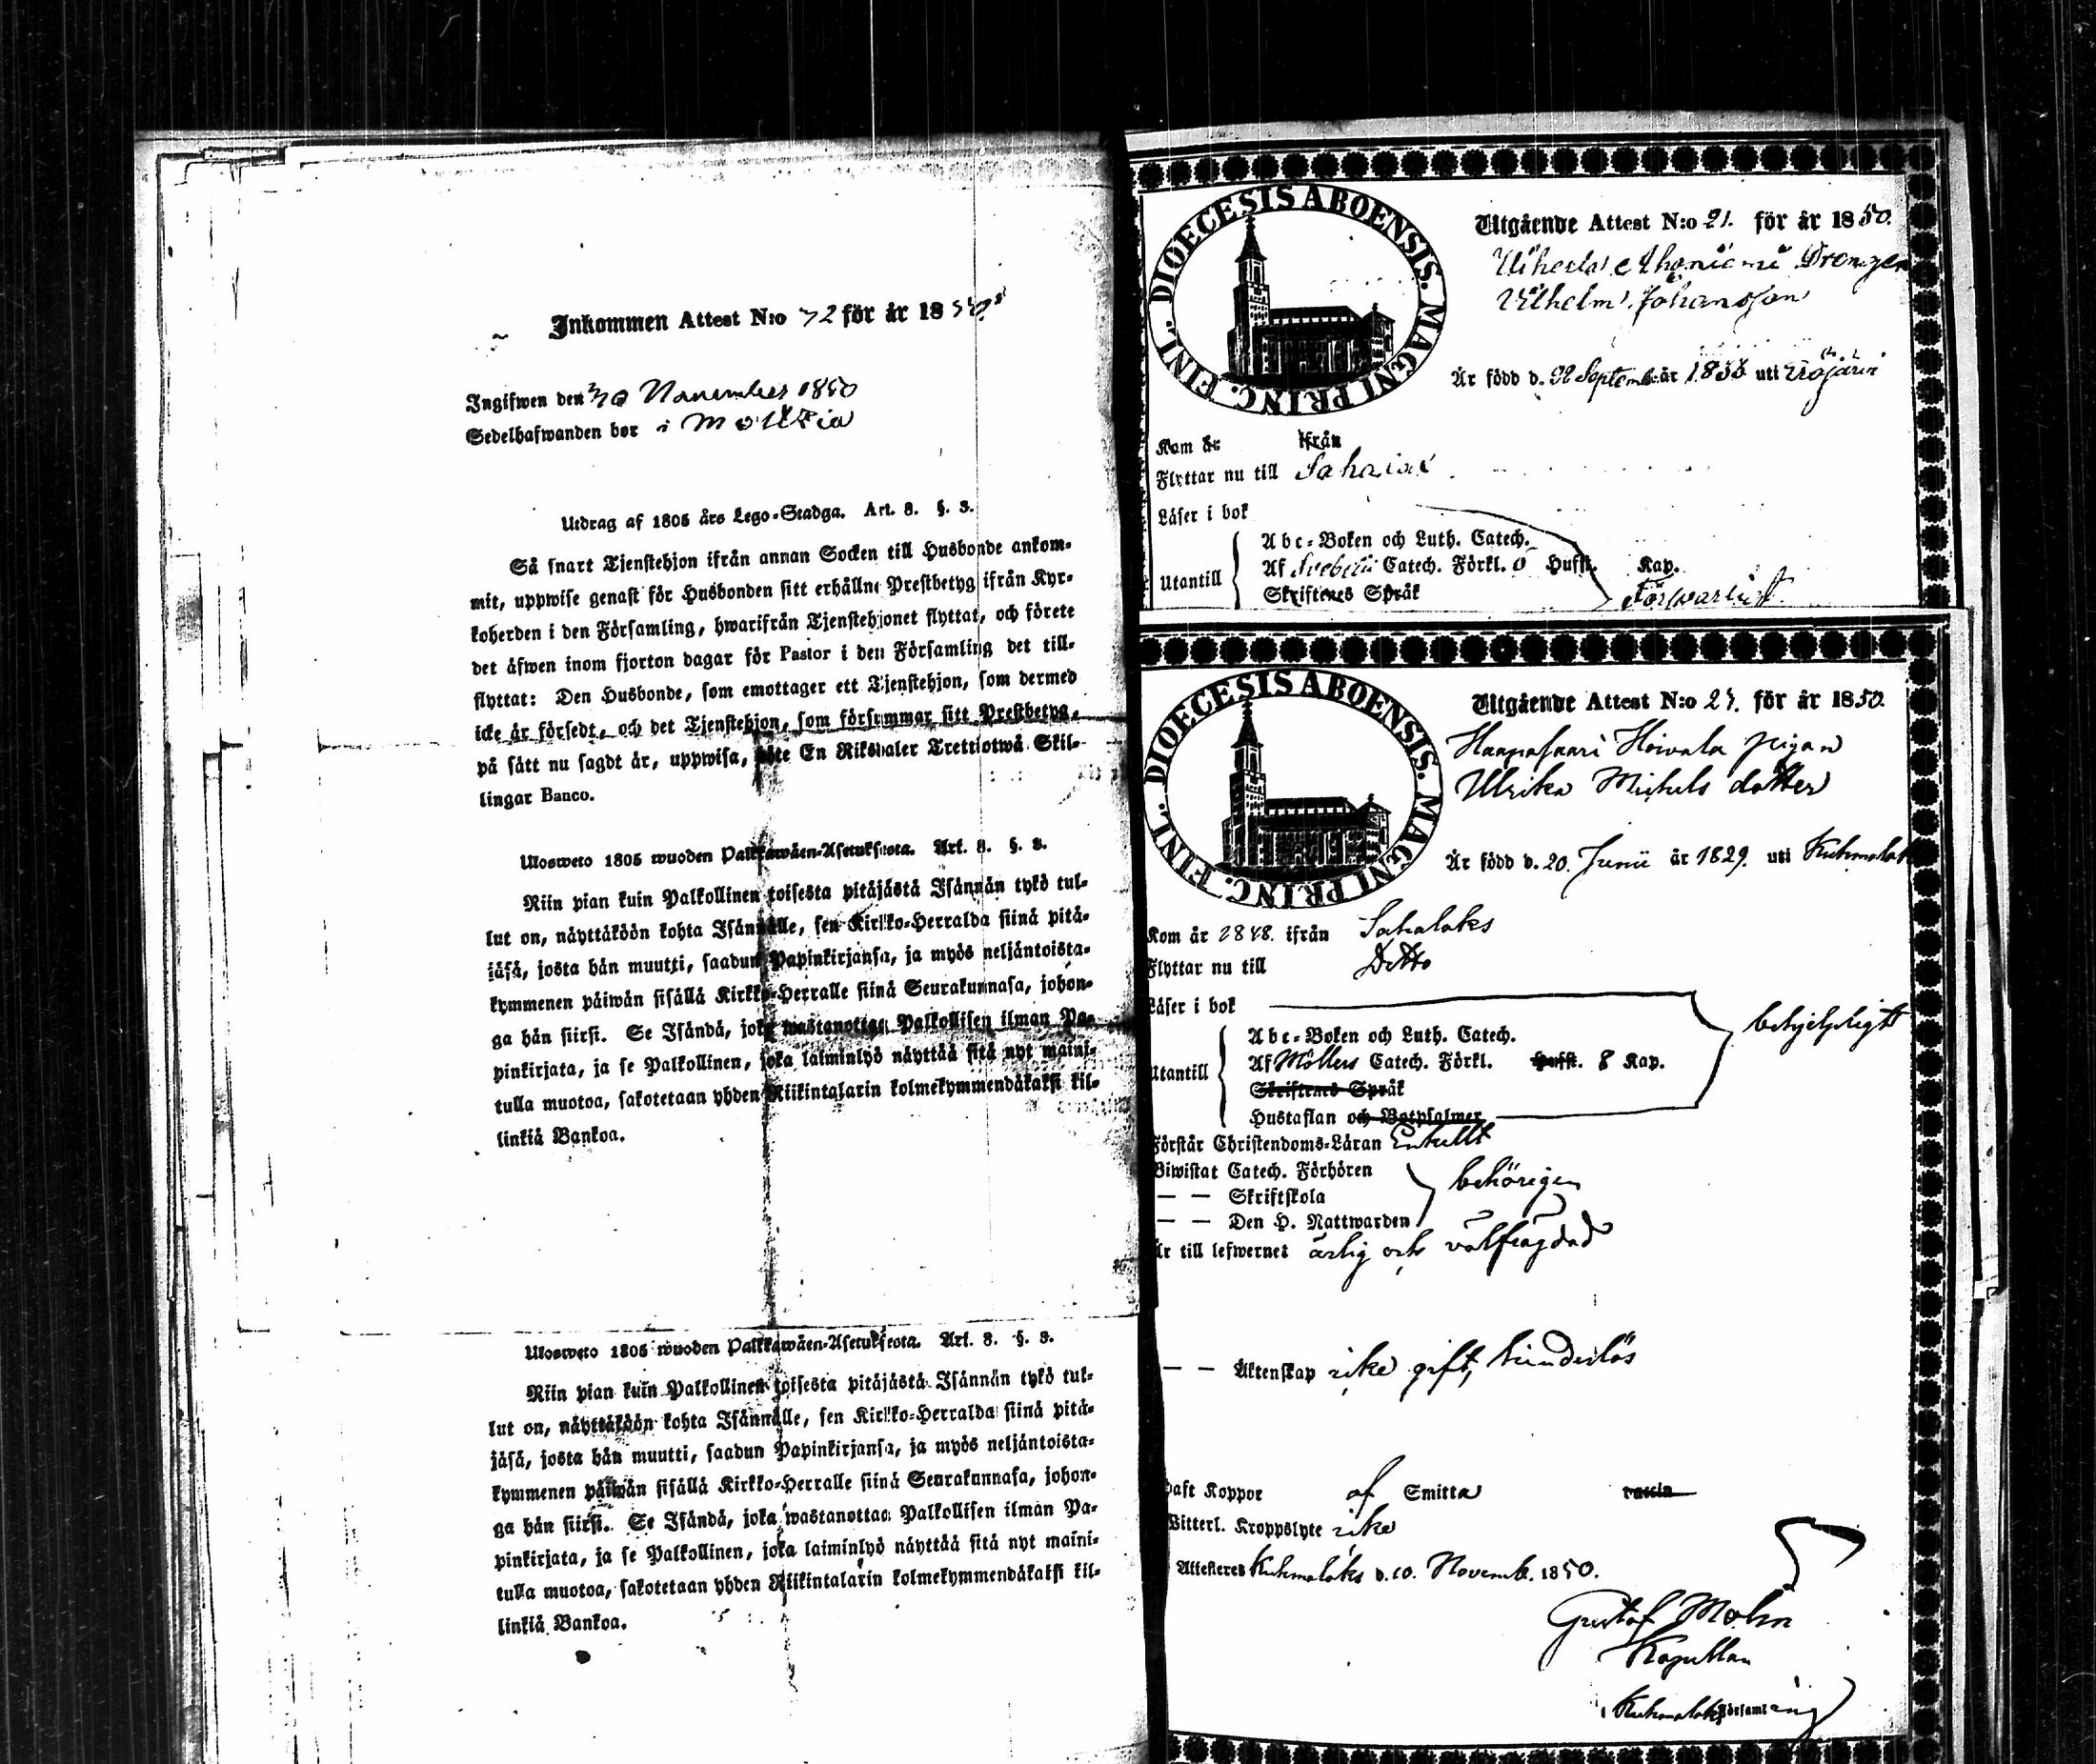 Inkommen Attest N:o 72 för år 1850
Ingifwen den 30 November 1850
Sedelhafwanden bor i Moltia
Utdrag af 1805 års Lego-Stadga. Art. 8. §. 3.
Så snart Tjenstehjon ifrån annan Socken till Husbonde ankom-
mit, uppwise genast för Husbonden sitt erhållne Prestbetyg ifrån Kyr-
koherden i den Församling, hwarifrån Tjenstehjonet flyttat, och förete
det åfwen inom fjorton dagar för Pastor i den Församling det till-
flyttat: Den Husbonde, som emottager ett Tjenstehjon, som dermed
icke år försedt, och det Tjenstehjon, som försummar sitt Prestbetyg,
på sått nu sagdt år, uppwisa, böte En Riksdaler Trettiotwå Skil-
lingar Banco.
Ulosweto 1805 wuoden Palkkawäen-Asetuksesta. Art. 8. §. 3.
Niin pian kuin Palkollinen toisesta pitäjästä Isännän tykö tul-
lut on, näyttäköön kohta Isännälle, sen Kirkko-Herralda siinä pitä-
jäsä, josta hän muutti, saadun Papinkirjansa, ja myös neljäntoista-
kymmenen päiwän sisällä Kirkko-Herralle siinä Seurakunnasa, johon-
ga hän siirsi. Se Isändä, joka wastanottaa Palkollisen ilman Pa-
pinkirjata, ja se Palkollinen, joka laiminlyö näyttää sitä nyt maini-
tulla muotoa, sakotetaan yhden Riikintalarin kolmekymmendäkaksi kil-
linkiä Bankoa.
Ulosweto 1805 wuoden Palkkawäen-Asetuksesta. Art. 8. §. 3.
Niin pian kuin Palkollinen toisesta pitäjästä Isännän tykö tul-
lut on, näyttäköön kohta Isännälle, sen Kirkko-Herralda siinä pitä-
jäsä, josta hän muutti, saadun Papinkirjansa, ja myös neljäntoista-
kymmenen päiwän sisällä Kirkko-Herralle siinä Seurakunnasa, johon-
ga hän siirsi. Se Isändä, joka wastanottaa Palkollisen ilman Pa-
pinkirjata, ja se Palkollinen, joka laiminlyö näyttää sitä nyt maini-
tulla muotoa, sakotetaan yhden Riikintalarin kolmekymmendäkaksi kil-
linkiä Bankoa.
DIOECESIS ABOENSIS. MAGNI PRINC. FINL.
Utgående Attest N:o 21. för år 1850.
Drengen
Vilhelm Johansson
År född d. 28 Septemb. år 1833 uti
Kom år ifrån
Flyttar nu till
Läser i bok
Utantill
Abc-Boken och Luth. Catech.
Af Svebelii Catech. Förkl. Hufst. Kap.
Skriftenes Språk
Försvarligt
DIOECESIS ABOENSIS. MAGNI PRINC. FINL.
Utgående Attest N:o 27. för år 1850.
Haapasaari Hoivala pigan
Ulrika Michels dotter
År född d. 20. Junii år 1829. uti Kuhmalaks
Kom år 1848. ifrån Sahalaks
Flyttar nu till Ditto
Läser i bok
behjelpligt
Utantill
Abc-Boken och Luth. Catech.
Af Möllers Catech. Förkl. Hufst. 8 Kap.
Skriftenes Språk
Hustaflan och Botpsalmer
Förstår Christendoms-Läran Enkellt
Biwistat Catech. Förhören
— — Skriftskola behörigen
— — Den H. Nattwarden
Är till lefwernet ärlig och välfrägdad
— — Äktenskap icke gift, hinderlös
Haft Koppor af Smitta
Witterl. Kroppslyte icke
Attesteras Kuhmalaks d. 10. Novemb. 1850.
Gustaf Molin
Kapellan
i Kuhmalaks Församling